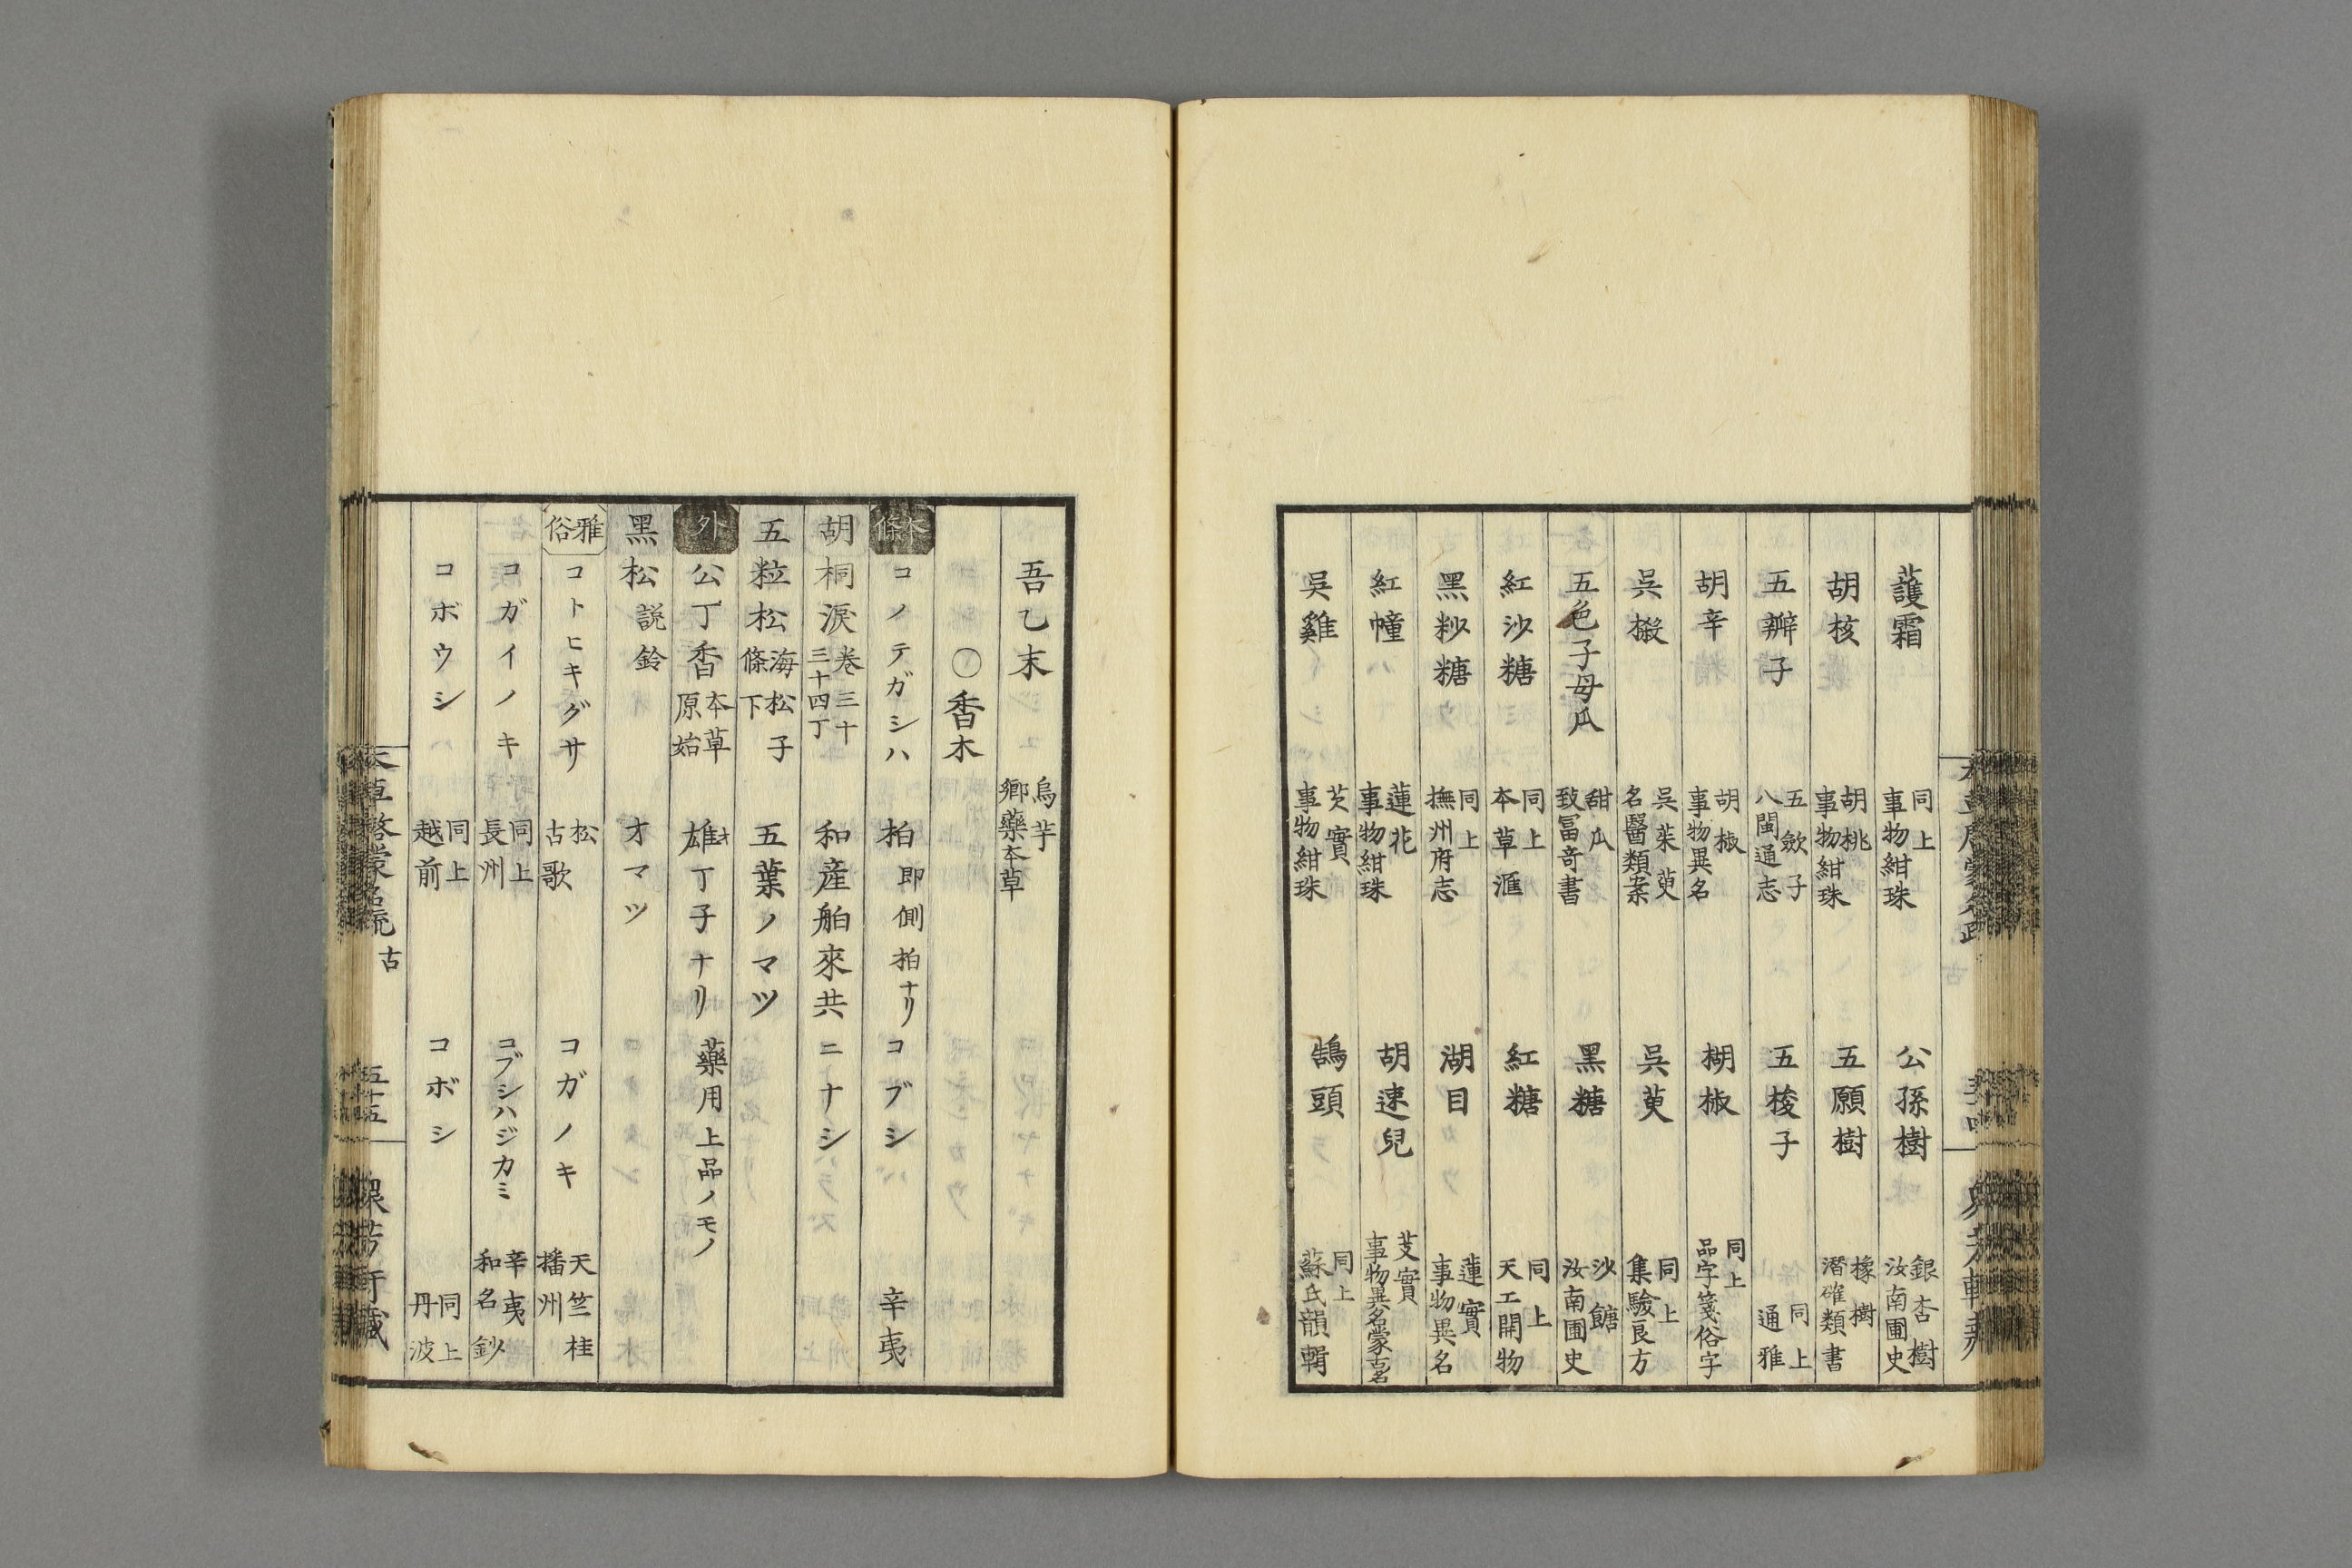 蘐霜 同上 事物紺珠 公孫樹 銀杏樹 汝南圃史
胡核 胡桃 事物紺珠 五願樹 櫞樹 潛確類書
五瓣子 五歛子 八閩通志 五棱子 同上 通雅
胡辛 胡椒 事物異名 楜椒 同上 品字箋俗字
呉榝 呉茱萸 名醫類案 呉萸 同上 集驗良方
五色子母瓜 甜瓜 致冨奇書 黑糖 沙餹 汝南圃史
紅沙糖 同上 本草滙 紅糖 同上 天工開物
黑粆糖 同上 撫州府志 湖目 蓮實 事物異名
紅幢 蓮花 事物紺珠 胡速兒 芰實 事物異名蒙古名
呉雞 芡實 事物紺珠 鵠頭 同上 蘇氏韻輯
吾乙末 烏芋 鄉藥本草
〇香木
本條 コノテガシハ 柏 即側柏ナリ コブシ 辛夷
胡桐淚 卷三十三十四丁 和産舶來共ニナシ
五粒松 海松子條下 五葉ノマツ
外 公丁香 本草原始 雄丁子ナリ 藥用上品ノモノ
黑松 説鈴 オマツ
雅俗 コトヒキグサ 松 古歌 コガノキ 天竺桂 播州
コガイノキ 同上 長州 コブシハジカミ 辛夷 和名鈔
コボウシ 同上 越前 コボシ 同上 丹波
本草啓蒙名疏 古 五十五